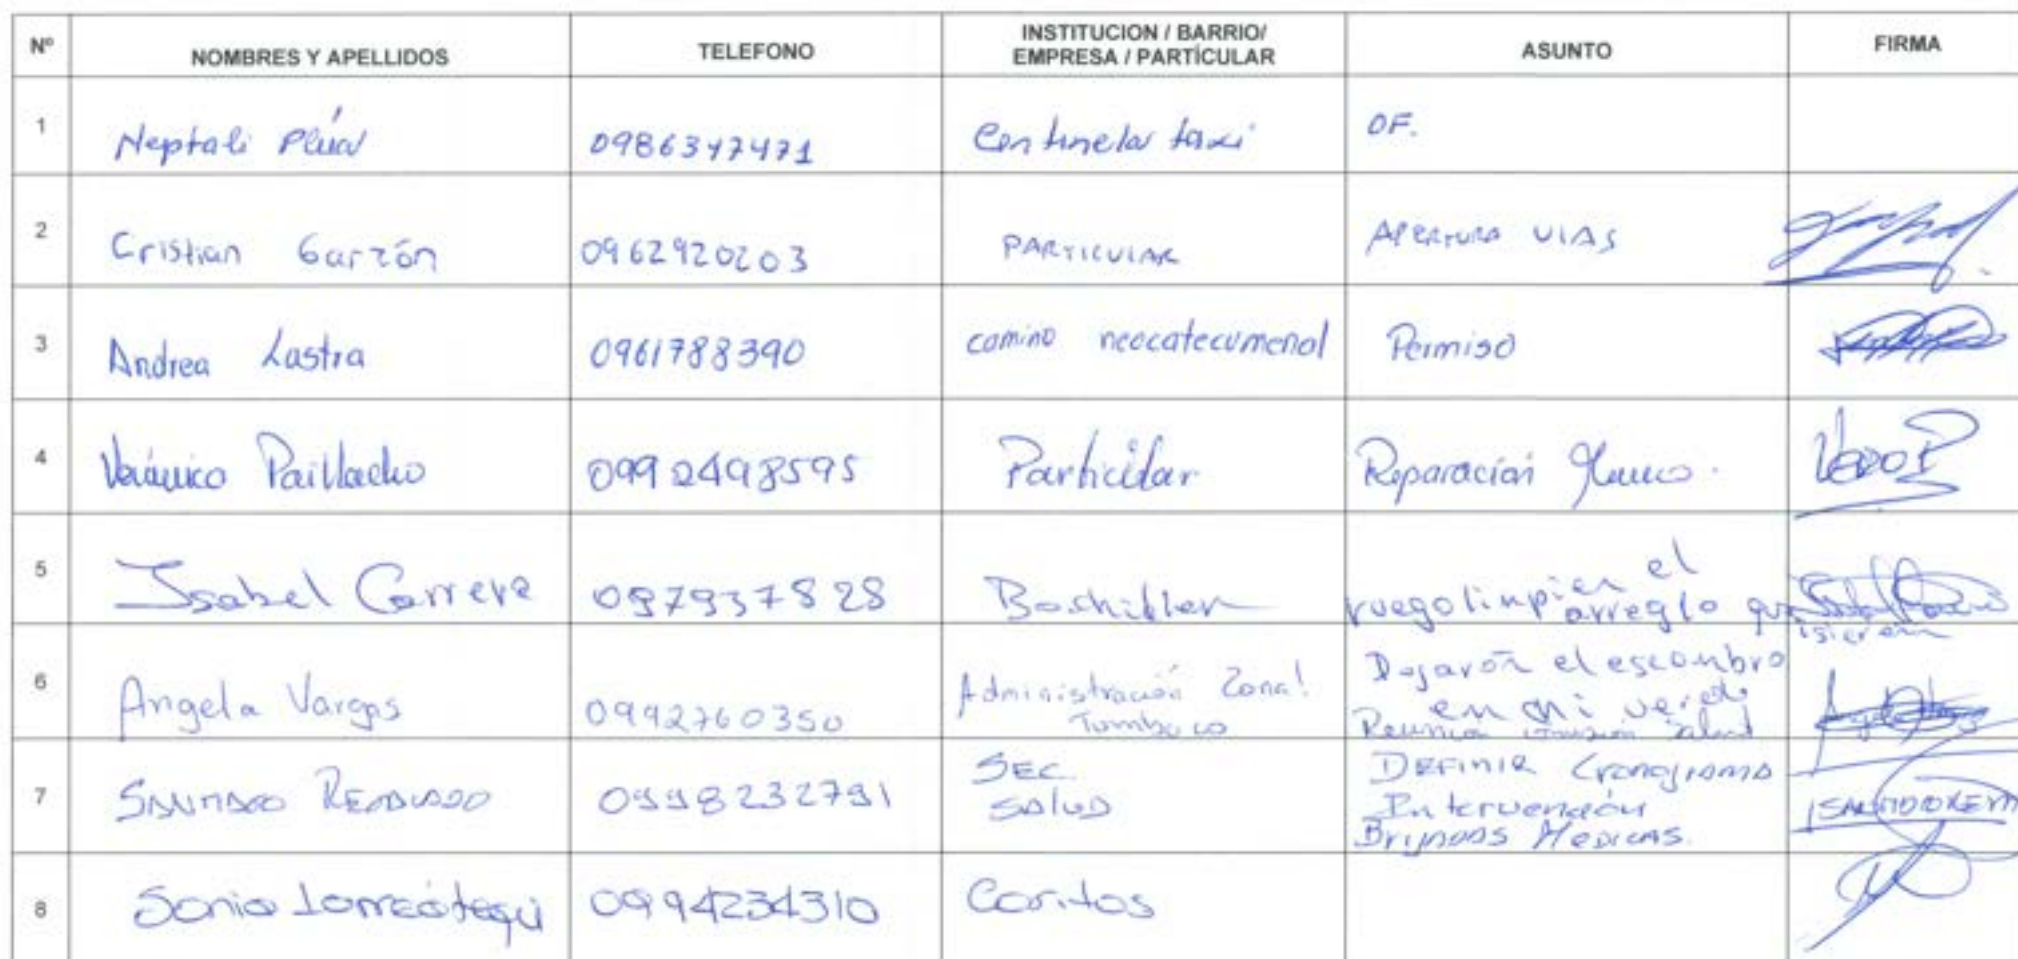 Nº NOMBRES Y APELLIDOS TELEFONO INSTITUCION / BARRIO/ EMPRESA / PARTÍCULAR ASUNTO FIRMA
1 Neptali 0986347471 Centinela taxi OF.
2 Cristian Garzón 0962920203 PARTICULAR APERTURA VIAS
3 Andrea Lastra 0961788390 camino neocatecumenal Permiso
4 Verónica Paillacho 0992498595 Particular Reparación
5 Isabel Carrera 097937828 ruego limpien el
arreglo que
isieron
6 Angela Vargas 0992760350 Administración Zonal Dejaron el escombro
Tumbaco en mi vereda
Reunión Salud
7 0998232791 SEC. DEFINIR Cronograma
SALUD Intervención
MEDICAS.
8 Sonia 0994234310 Caritas